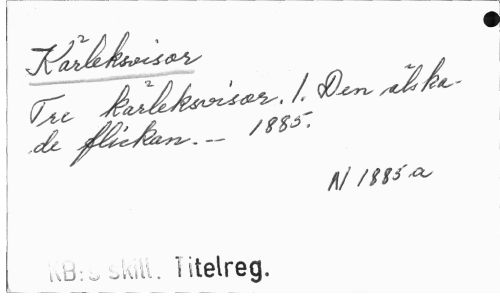 Kärleksvisor
Tre kärleksvisor. 1. Den älska-
de flickan. — 1885.
N 1885 a
KB:s skill. Titelreg.